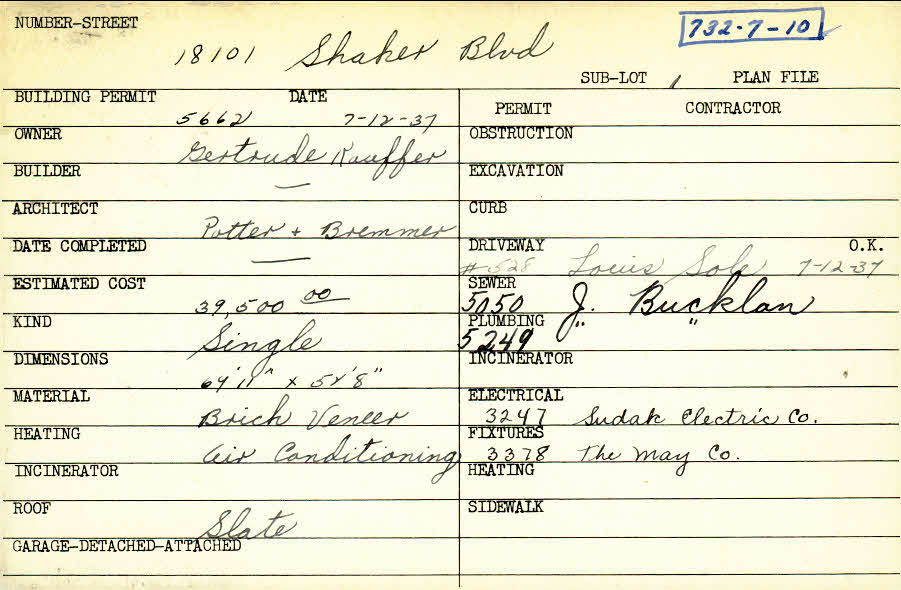 NUMBER-STREET
18101 Shaker Blvd
732-7-10
SUB-LOT PLAN FILE
BUILDING PERMIT DATE
5662 7-12-37
OWNER
Gertrude Kauffer
BUILDER
—
ARCHITECT
Potter + Bremmer
DATE COMPLETED
—
ESTIMATED COST
39,500 00
KIND
Single
DIMENSIONS
64'11" x 54'8"
MATERIAL
Brick Veneer
HEATING
Air Conditioning
INCINERATOR
ROOF
Slate
GARAGE-DETACHED-ATTACHED
PERMIT CONTRACTOR
OBSTRUCTION
EXCAVATION
CURB
DRIVEWAY O.K.
#528 Louis Sole 7-12-37
SEWER
5050 J. Bucklan
PLUMBING
5249 " "
INCINERATOR
ELECTRICAL
3247 Sudak Electric Co.
FIXTURES
3378 The May Co.
HEATING
SIDEWALK